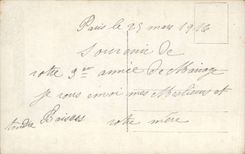 Paris le 25 mars 1916
Souvenir de
votre 9me année de Mariage
je vous envoi mes Meilleurs et
tendre Baisers votre mère